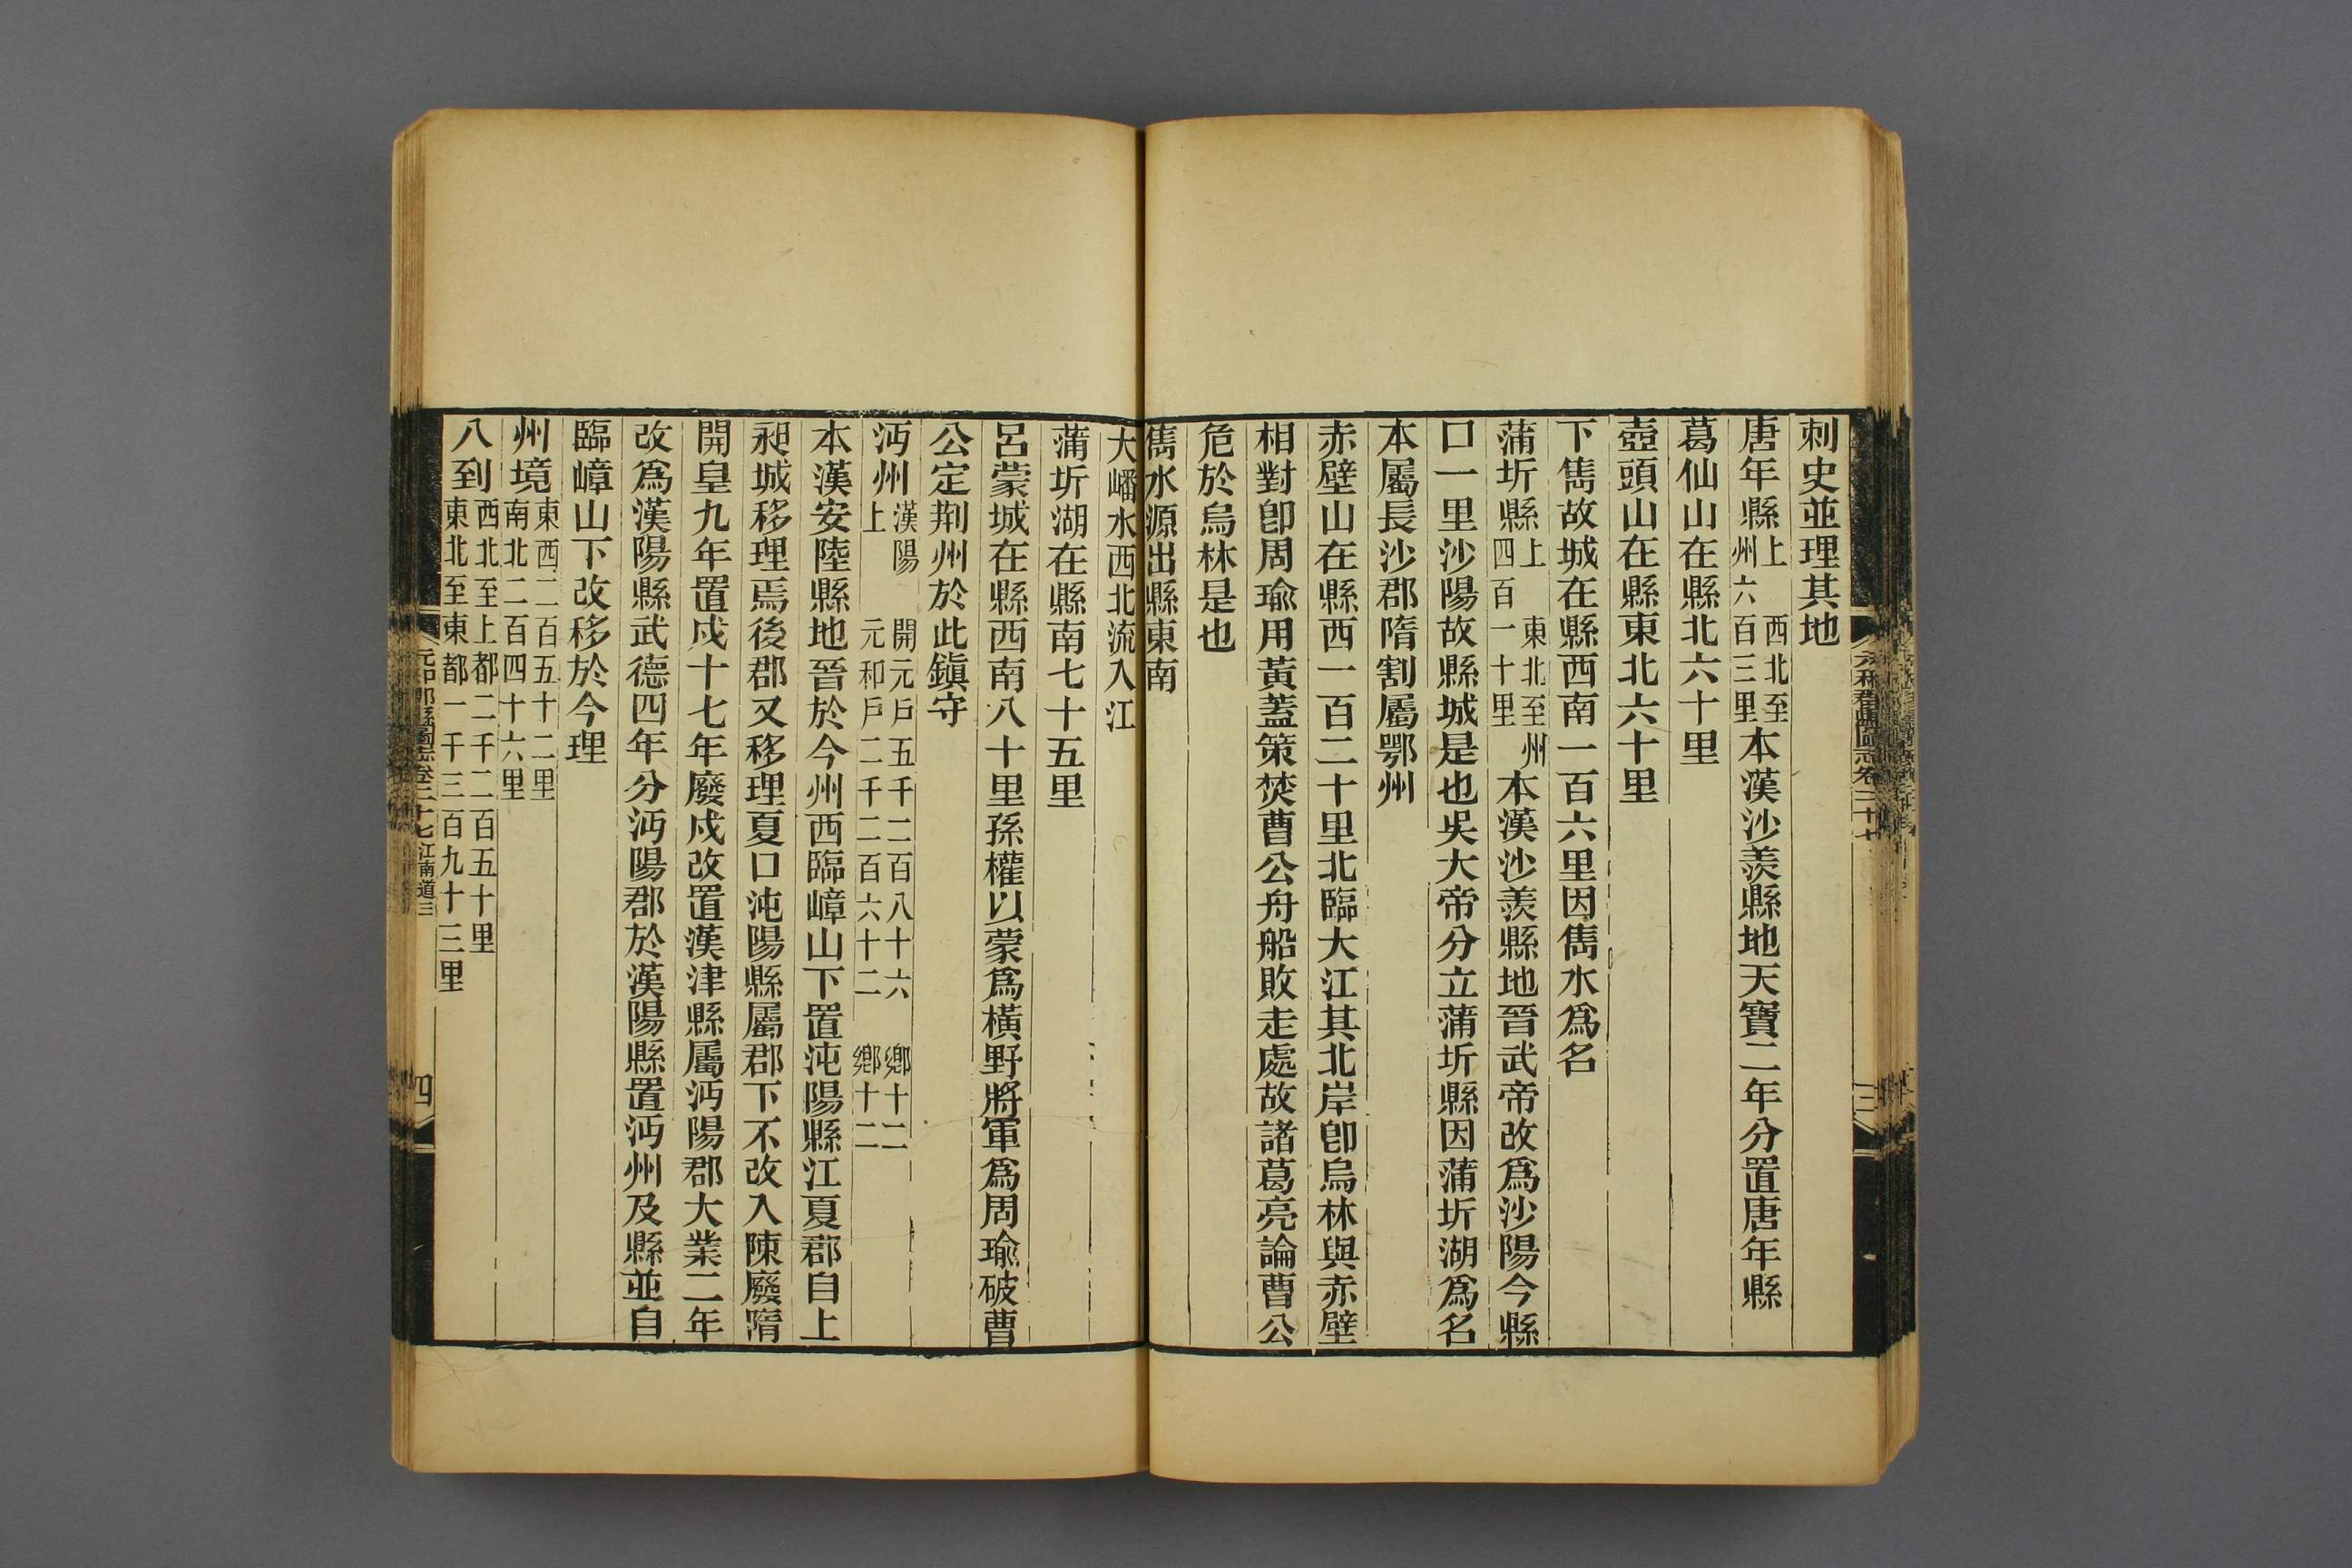 刺史並理其地
唐年縣上 西北至州六百三里本漢沙羨縣地天寶二年分置唐年縣
葛仙山在縣北六十里
壺頭山在縣東北六十里
下雋故城在縣西南一百六里因雋水爲名
蒲圻縣上 東北至州四百一十里本漢沙羨縣地晉武帝改爲沙陽今縣
口一里沙陽故縣城是也吳大帝分立蒲圻縣因蒲圻湖爲名
本屬長沙郡隋割屬鄂州
赤壁山在縣西一百二十里北臨大江其北岸卽烏林與赤壁
相對卽周瑜用黃蓋策焚曹公舟船敗走處故諸葛亮論曹公
危於烏林是也
雋水源出縣東南
大嶓水西北流入江
蒲圻湖在縣南七十五里
呂蒙城在縣西南八十里孫權以蒙爲橫野將軍爲周瑜破曹
公定荆州於此鎭守
沔州漢陽上 開元戶五千二百八十六 鄉十二 元和戶二千二百六十二 鄉十二
本漢安陸縣地晉於今州西臨嶂山下置沌陽縣江夏郡自上
昶城移理焉後郡又移理夏口沌陽縣屬郡下不改入陳廢隋
開皇九年置戍十七年廢戍改置漢津縣屬沔陽郡大業二年
改爲漢陽縣武德四年分沔陽郡於漢陽縣置沔州及縣並自
臨嶂山下改移於今理
州境東西二百五十二里南北二百四十六里
八到西北至上都二千二百五十里東北至東都一千三百九十三里
元和郡縣圖志卷二十七 江南道三
四